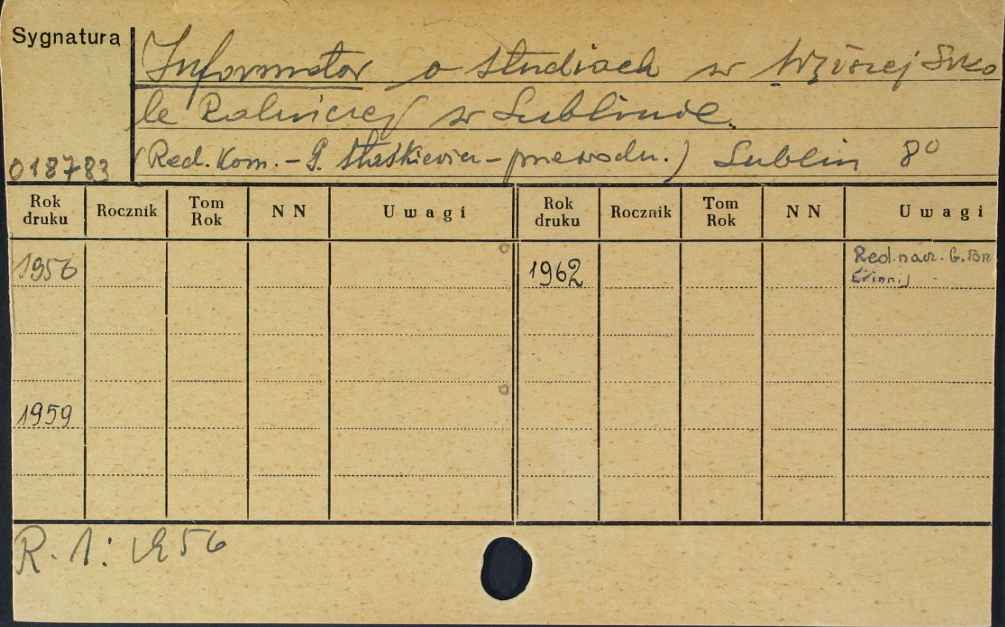 Sygnatura
Informator o studiach w Wyższej Szko
le Rolniczej w Lublinie.
(Red. Kom. - P. Staśkiewicz - przewodn.) Lublin 8°
018783
Rok druku Rocznik Tom Rok NN Uwagi Rok druku Rocznik Tom Rok NN Uwagi
1956 1962 Red. nacz. G. Brz
1959
R. 1: 1956